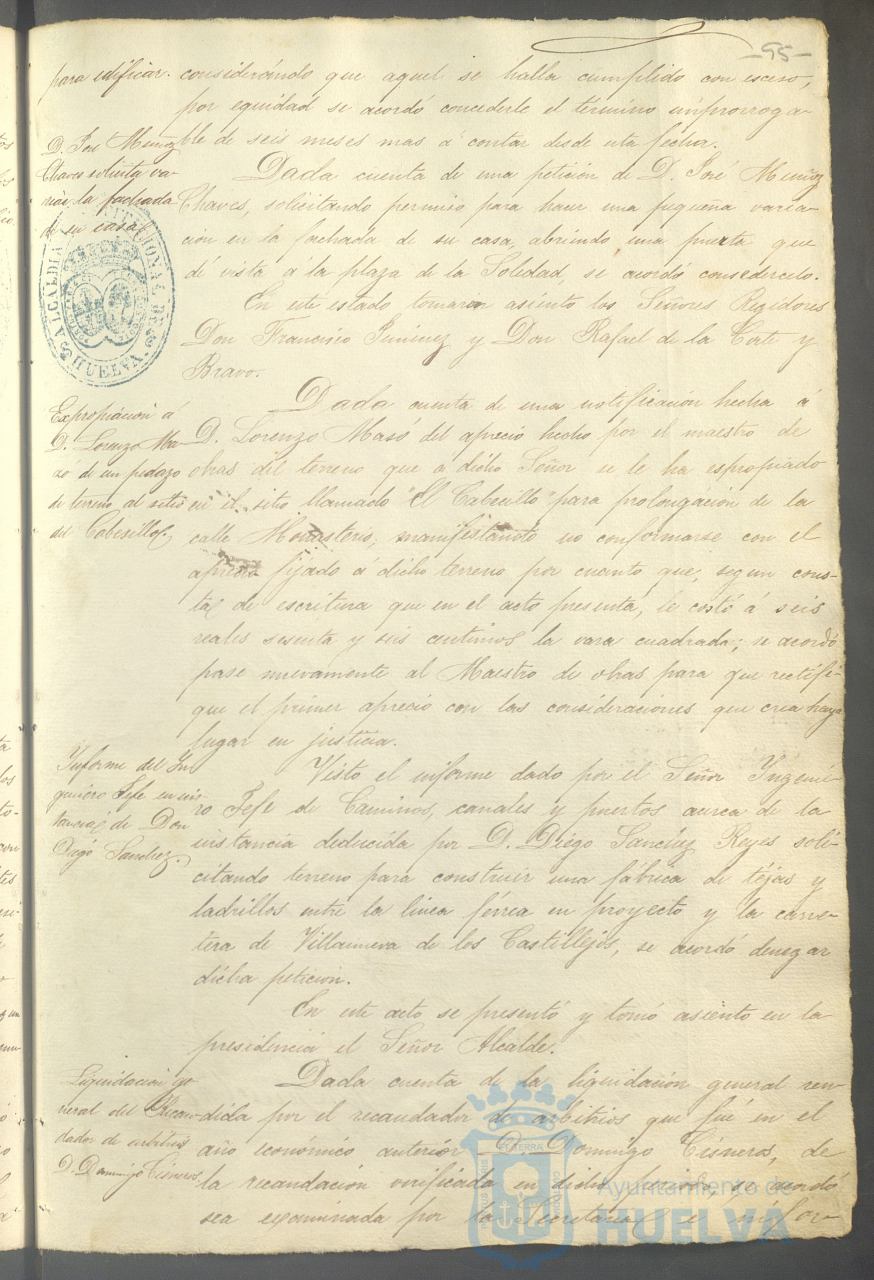 -95-
para edificar. considerándo que aquel se halla cumplido con esceso,
por equidad se acordó concederle el término improrroga-
ble de seis meses mas á contar desde esta fecha.
D. José Muñoz
Chaves solicita va-
riar la fachada
de su casa
Dada cuenta de una petición de D. José Muñoz
Chaves, solicitando permiso para hacer una pequeña varia-
ción en la fachada de su casa, abriendo una puerta que
dé vista á la plaza de la Soledad, se acordó consedérselo.
ALCALDIA CONSTITUCIONAL DE
HUELVA
En este estado tomaron asiento los Señores Regidores
Don Francisco Jimenez y Don Rafael de la Corte y
Bravo.
Expropiación á
D. Lorenzo Ma-
zó de un pedazo
de terreno al sitio
del Cabesillo.
Dada cuenta de una notificación hecha á
D. Lorenzo Masó del aprecio hecho por el maestro de
obras del terreno que a dicho Señor se le ha espropiado
en el sitio llamado "El Cabesillo" para prolongación de la
calle Monasterio, manifestando no conformarse con el
aprecio fijado á dicho terreno por cuanto que, segun cons-
ta de escritura que en el acto presenta, le costó á seis
reales sesenta y seis centimos la vara cuadrada; se acordó
pase nuevamente al Maestro de obras para que rectifi-
que el primer aprecio con las consideraciones que crea haya
lugar en justicia.
Informe del In-
geniero Jefe en ins-
tancia de Don
Diego Sanchez.
Visto el informe dado por el Señor Ingenie-
ro Jefe de Caminos, canales y puertos acerca de la
instancia deducida por D. Diego Sanchez Reyes soli-
citando terreno para construir una fábrica de téjas y
ladrillos entre la linea férrea en proyecto y la carre-
tera de Villanueva de los Castillejos, se acordó denegar
dicha peticion.
En este acto se presentó y tomó asiento en la
presidencia el Señor Alcalde.
Liquidacion ge-
neral del Recau-
dador de arbitrios
D. Domingo Cisneros
Dada cuenta de la liquidación general ren-
dida por el recaudador de arbitrios que fué en el
año económico anterior D. Domingo Cisneros, de
la recaudación verificada en dicho periodo se acordó
sea examinada por la Secretaria e infor-
Ayuntamiento de
HUELVA